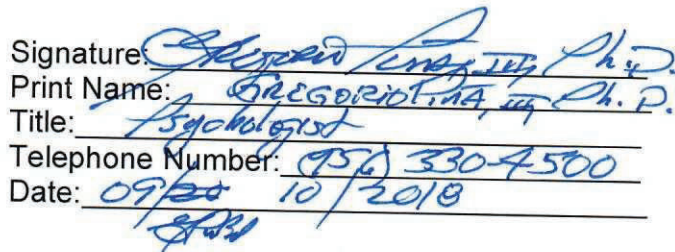 Signature: Gregorio Pina, III, Ph.D.
Print Name: GREGORIO PINA, III, Ph.D.
Title: Psychologist
Telephone Number: (956) 330-4500
Date: 09/20 10/2018